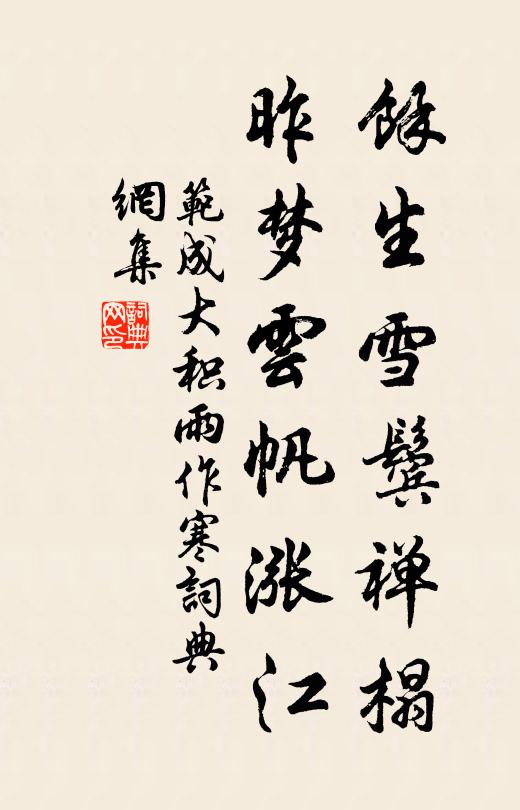 餘生雪鬓禅榻
昨梦雲帆涨江
範成大积雨作寒詞典
網集
詞典网印